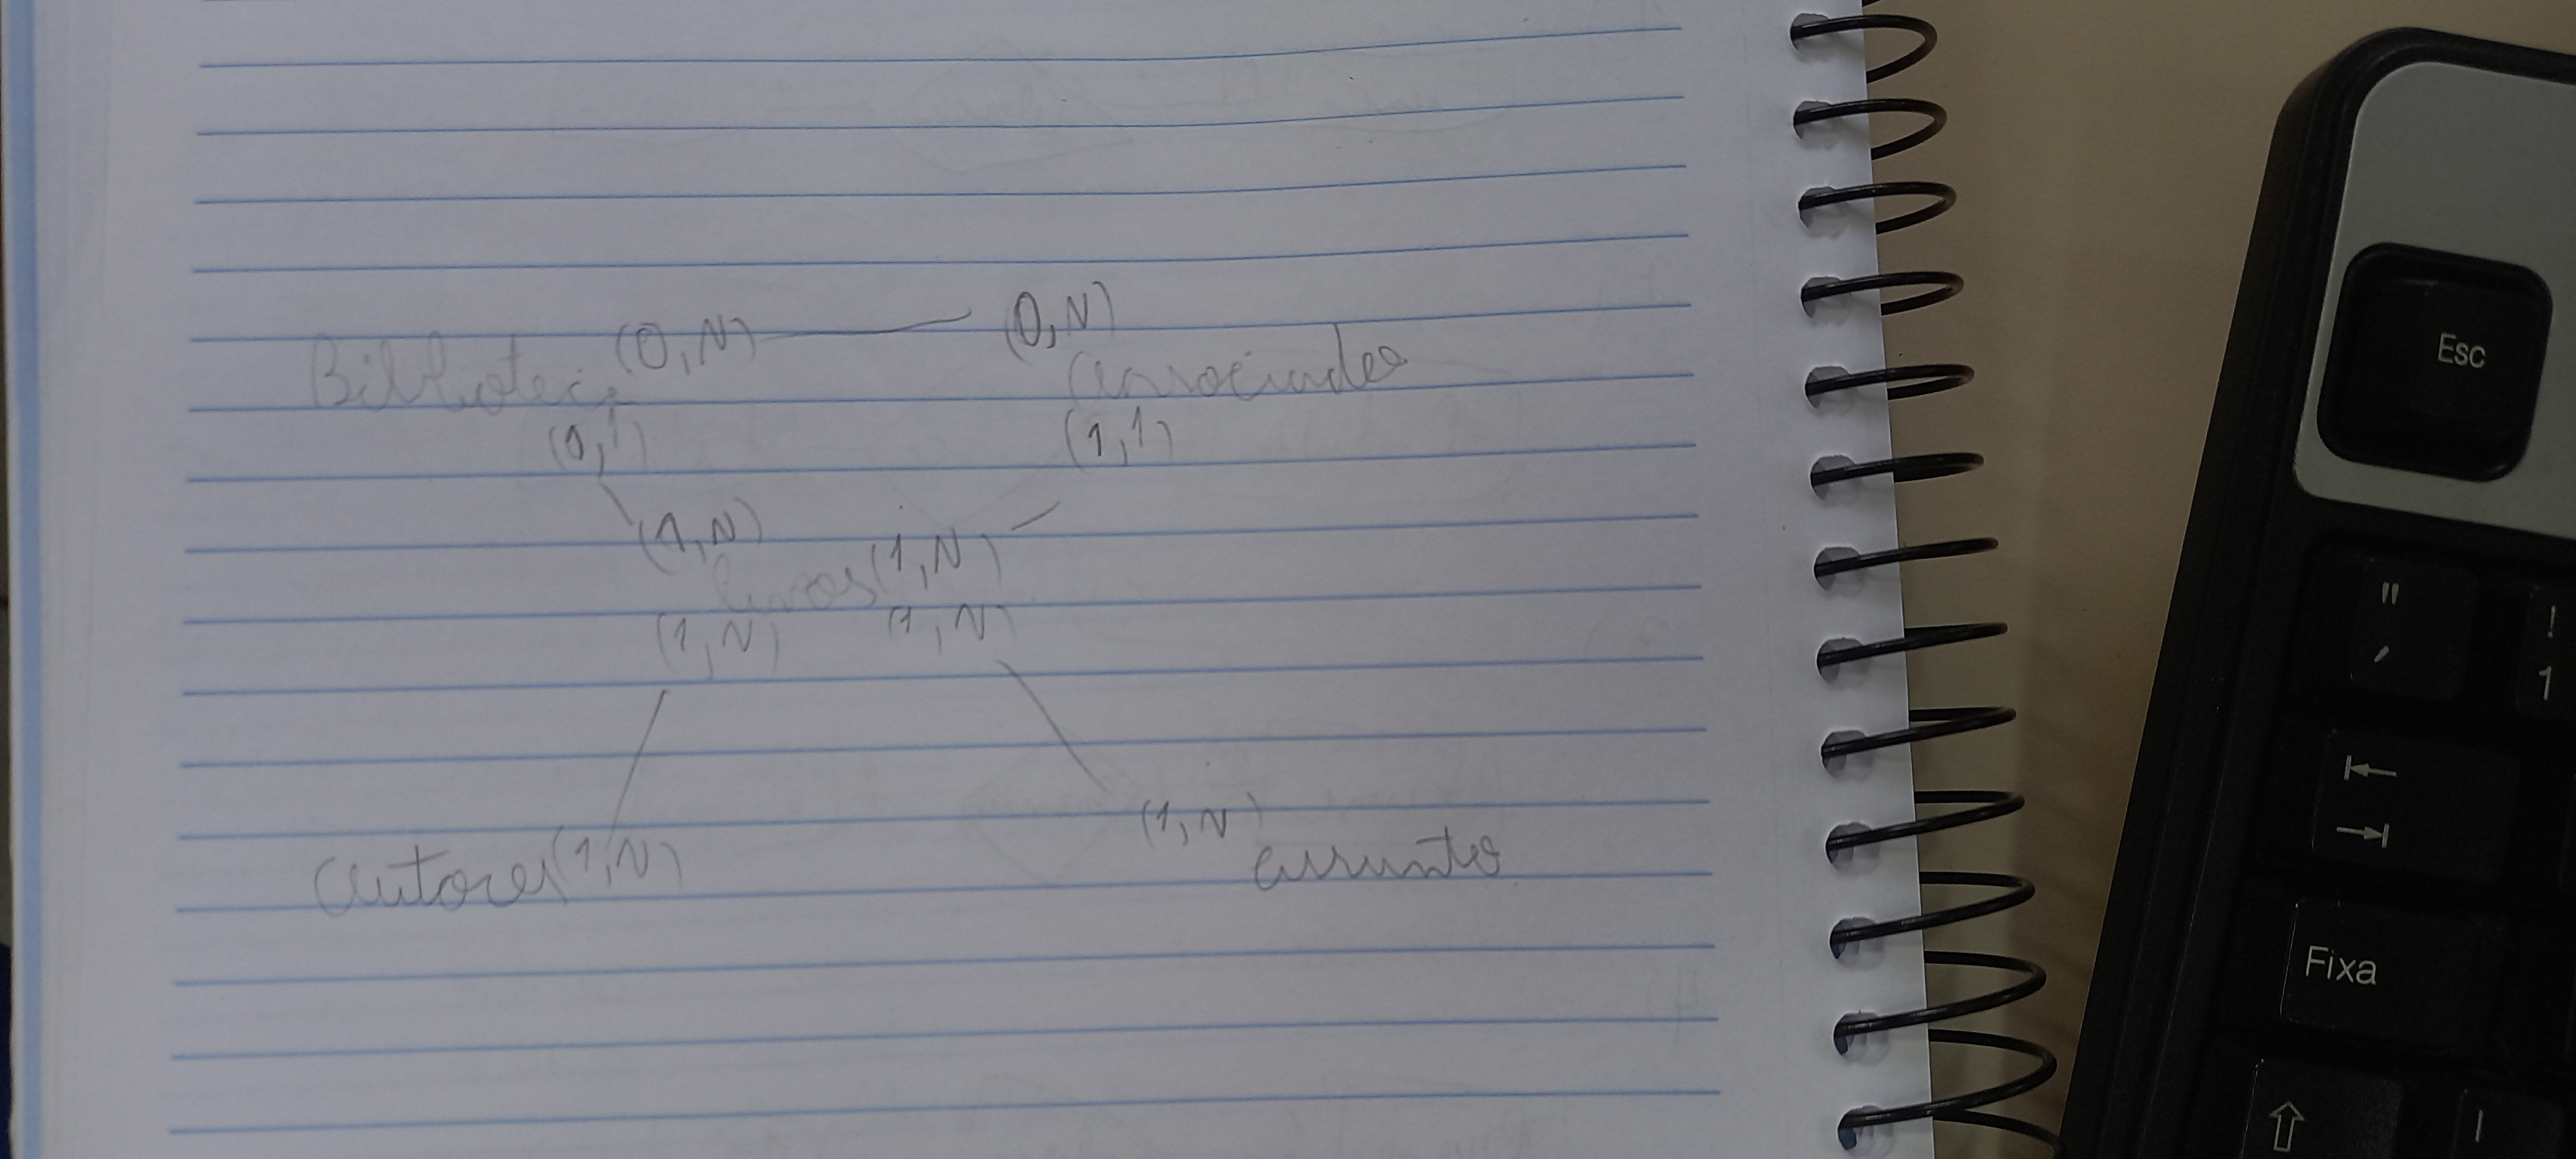 (0,N) (0,N)
Biblioteca Associado
(0,1) (1,1)
(1,N)
Livros (1,N)
(1,N) (1,N)
Autores (1,N) (1,N) assunto
Esc
"
'
!
1
Fixa